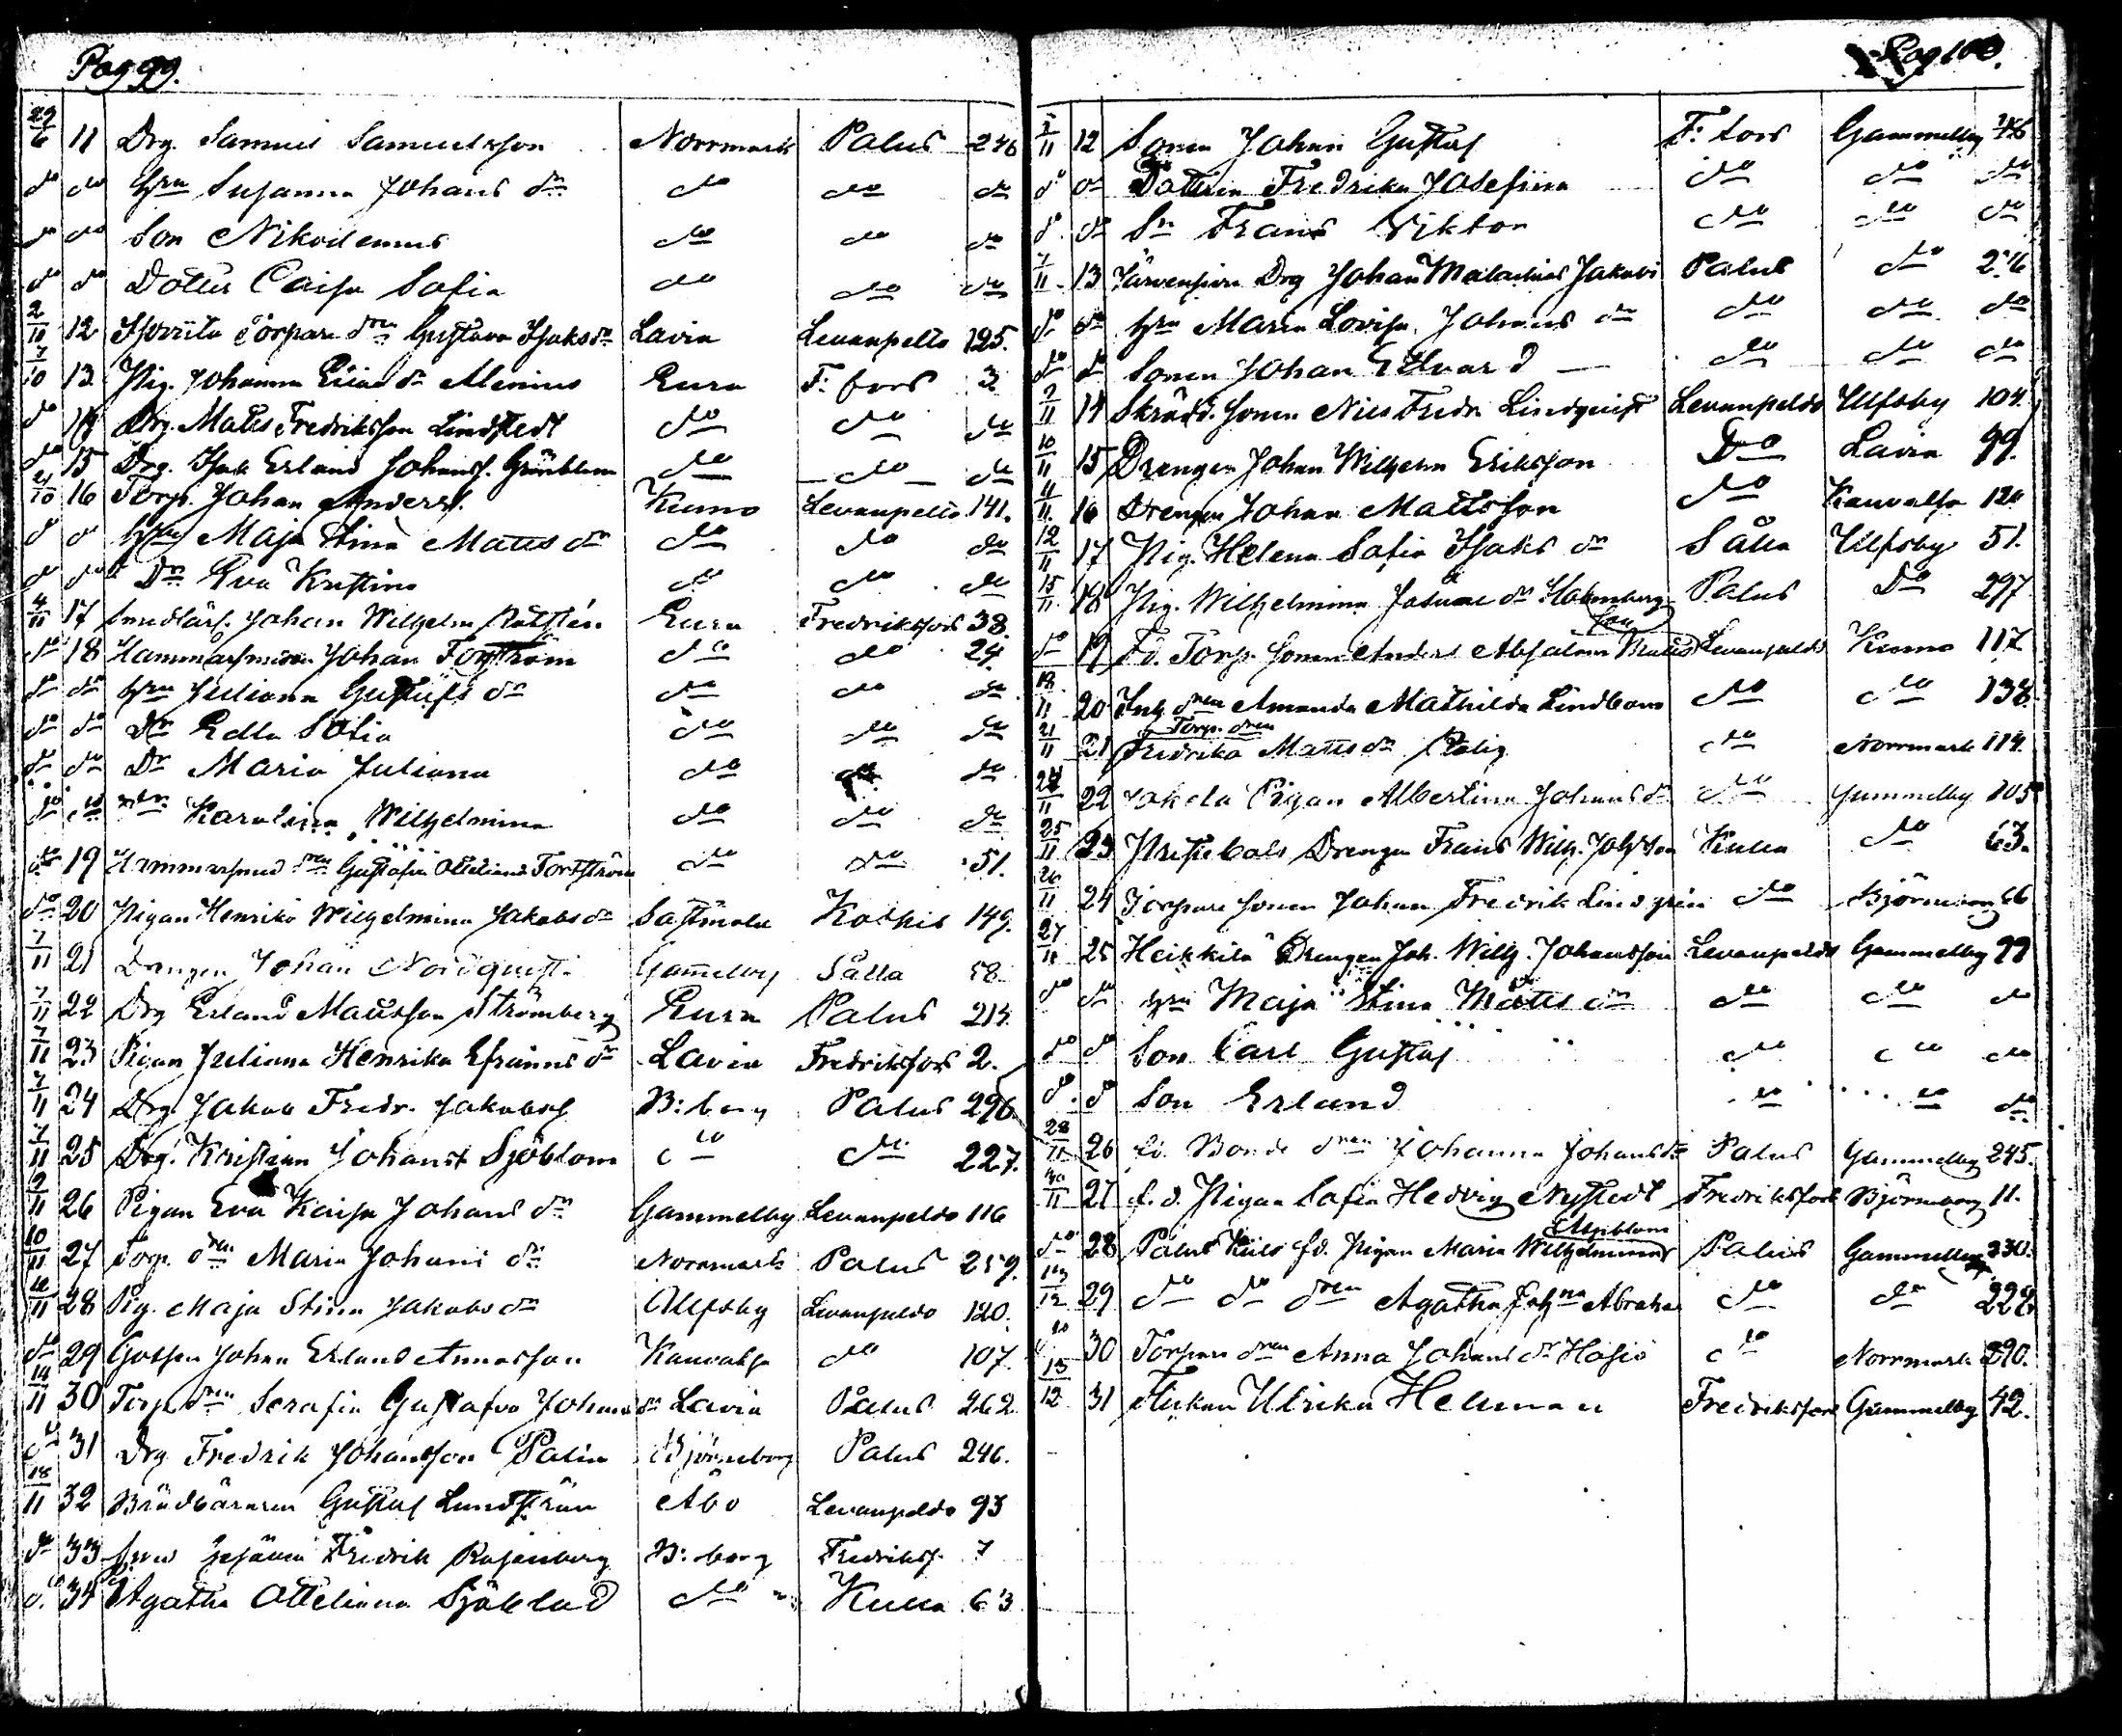 Pag 99.
29/6 11 Drg. Samuel Samuelsson Norrmark Palus 246
do do hru Susanna Johans dr do do do
do do Son Nikodemus do do do
do do Dotter Caisa Sofia do do do
2/10 12 Torpare drn Gustava Isaks dr Lavia Levanpelto 125.
7/10 13 Pig. Johanna dr Elenius Eura F: fors 3
do 14 Drg. Matts Fredriksson Lindstedt do do do
do 15 Drg. Isak Erland Johanss. Grönblom do do do
21/10 16 Torp. Johan Anderss. Kumo Levanpelto 141.
do do hru Maja Stina Matts dr do do do
do do Dr Eva Kristina do do do
4/11 17 Johan Wilhelm Eura Fredriksfors 38.
do 18 Hammarsmeden Johan Forsström do do 24.
do do hru Juliana Gustafs dr do do do
do do Dr Edla Sofia do do do
do do Dr Maria Juliana do do do
do do dr Karolina Wilhelmina do do do
do 19 Hammarsmed drn Gustafva Otteliana Forsström do do 51.
do 20 Pigan Henrika Wilhelmina Jakobs dr Sastmola 149.
7/11 21 Drengen Johan Nordqvist Gammelby Sålla 58
7/11 22 Drg Erland Mattsson Strömberg Eura Palus 214
7/11 23 Pigan Juliana Henrika Efraims dr Lavia Fredriksfors 2.
7/11 24 Drg. Jakob Fredr. Jakobss B: borg Palus 296
7/11 25 Drg. Kristian Johanss Sjöblom do do 227.
9/11 26 Pigan Eva Kaisa Johans dr Gammelby Levanpelto 116
10/11 27 Torp. drn Maria Johans dr Norrmark Palus 259.
28 Pig. Maja Stina Jakobs dr Ulfsby Levanpelto 120.
do 29 Gossen Johan Erland Annasson Kauvatsa do 107.
14/11 30 Torp drn Serafia Gustafva Johans dr Lavia Palus 262
do 31 Drg Fredrik Johansson Palin Björneborg Palus 246.
18/11 32 Gustaf Lundström Åbo Levanpelto 93
do 33 Fredrik Rosenberg B: borg Fredriksf. 7
do 34 Agatha Otteliana Sjöblad do Kulla 63
Pag 100.
12 Sonen Johan Gustaf F: fors Gammelby
do do Dottren Fredrika Josefina do do do
do do Sn Frans Viktor do do do
7/11 13 Järvenpään Drg Johan Malachias Palus do
do do hru Maria Lovisa Johans dr do do do
do do Sonen Johan Edvard do do do
14 Skrädd. sonen Nils Fredr Lindqvist Levanpelto Ulfsby 104.
10/11 15 Drengen Johan Wilhelm Eriksson Do Lavia 99.
16 Drengen Johan Mattsson do Kauvatsa 120
12/11 17 Pig. Helena Sofia Isaks dr Sålla Ulfsby 51.
15/11 18 Pig. Wilhelmina dr Holmberg Palus Do 297
do 19 Fd. Torp. sonen Anders Absalom Levanpelto Kumo 117
18/11 20 Inh drn Amanda Mathilda Lindbom do do 138
Torp. drn
21/11 21 Fredrika Matts dr do Norrmark 114.
24/11 22 Jokela Pigan Albertina Johans dr do Gammelby 105
25/11 23 Drengen Frans Wilh. Johsson Kulla do 63.
26/11 24 Torpare sonen Johan Fredrik Lindgrén do Björneborg 66
27/11 25 Heikkilä Drengen Joh. Wilh. Johansson Levanpelto Gammelby
do do hru Maja Stina Matts dr do do do
do do Son Carl Gustaf do do do
do do Son Erland do do do
28/11 26 fd. Bonde drn Johanna Johans dr Palus Gammelby 245.
30/11 27 f. d. Pigan Sofia Hedvig Nystedt Fredriksfors Björneborg 11.
do 28 Palus fd. Pigan Maria Wilhelmina Palus Gammelby
29 do do drn Agatha do do
do 30 Torpare drn Anna Johans dr do Norrmark 290.
15/12 31 Flickan Ulrika Helman Fredriksfors Gammelby 42.